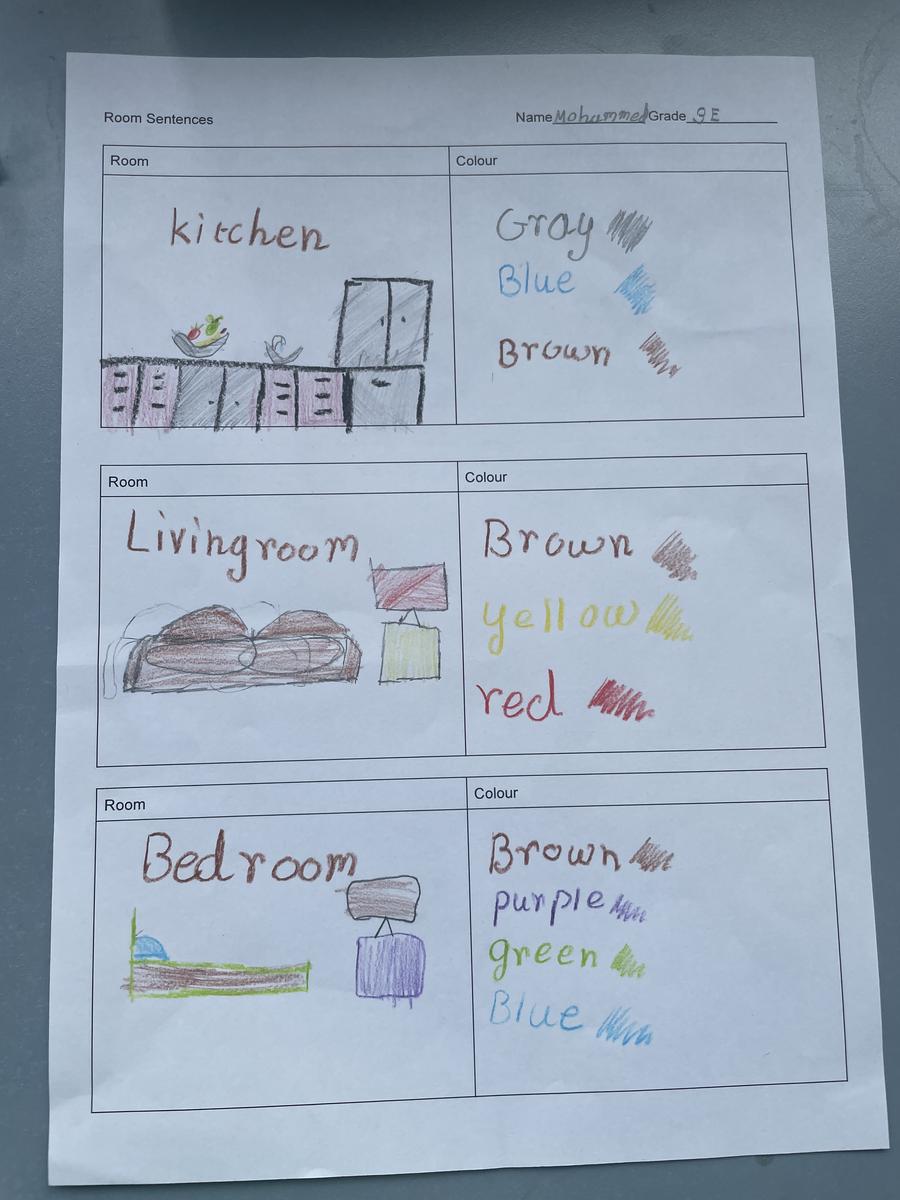 Room Sentences
Name Mohammed Grade 9E
Room
Colour
kitchen
Gray
Blue
Brown
Room
Colour
Livingroom
Brown
yellow
red
Room
Colour
Bedroom
Brown
purple
green
Blue